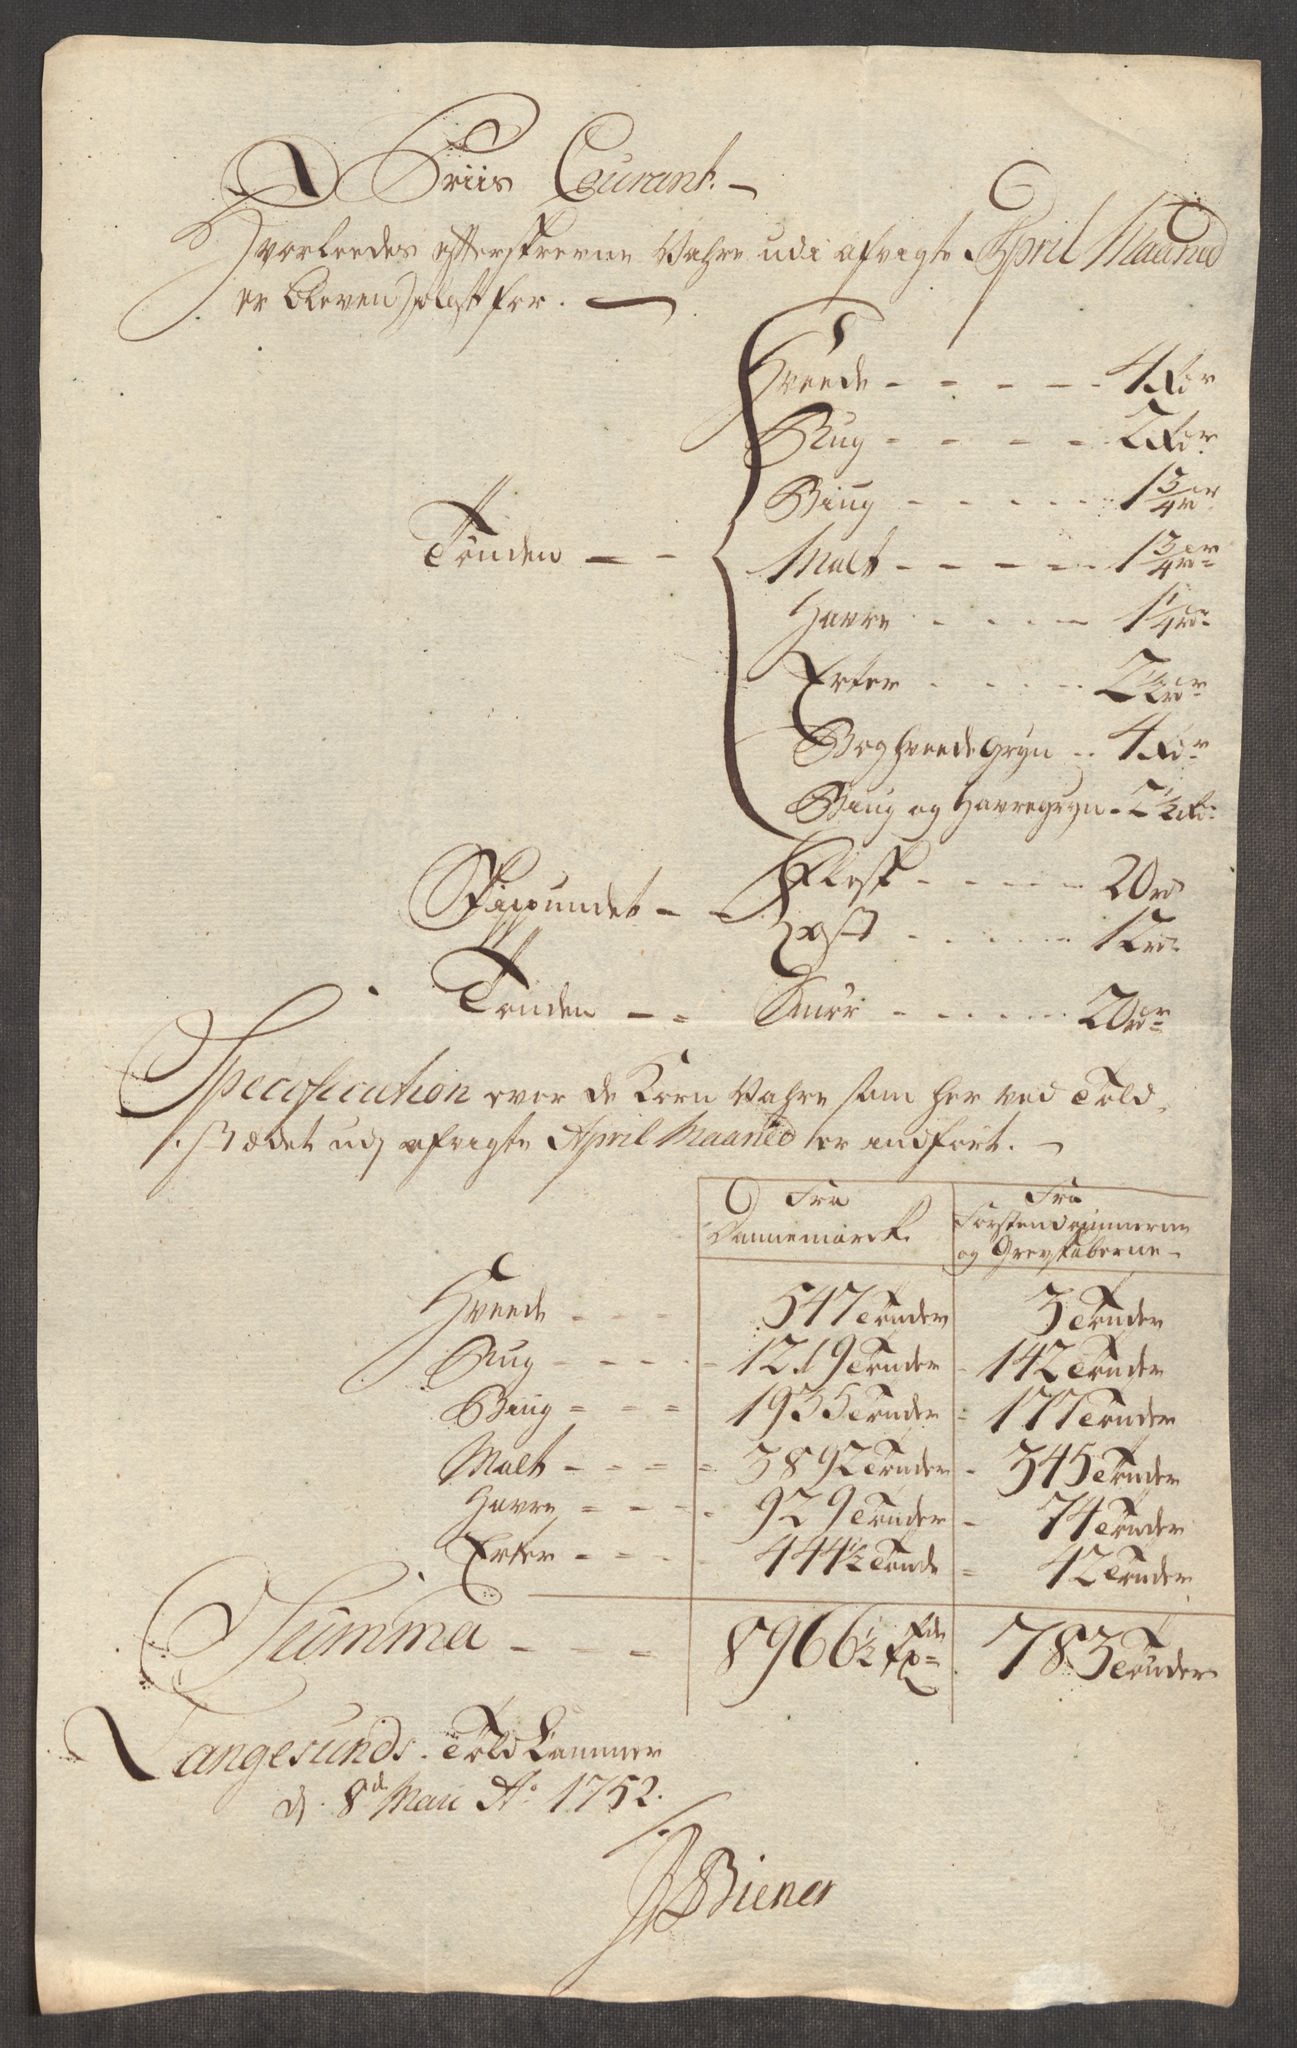 Priis Courant.
Hvorleedes efterskrevne Vahre udi afvigte April Maaned
er bleven solgt for.
Hveede - - - - - 4 Rdr
Rug - - - - 2 Rdr
Biug - - - - - 1 3/4 Rdr
Tönden - - Malt - - - - - 1 3/4 Rdr
Havre - - - - 1 1/4 Rdr
Erter - - - - 2 1/2 Rdr
Boghveede Gryn - - 4 Rdr
Biug og Havregryn - 2 1/2 Rdr
Skippundet - - Flesk - - - - - 20 Rd
Ost - - - - - 12 Rdr
Tönden - - Smör - - - - - 20 Rdr
Specification over de Korn Vahre som her ved Told-
stædet udj afvigte April Maaned er indfört.
Fra Fra
Dannemarck. Förstendömmerne
og Grevskaberne
Hveede - - - 547 Tönder 3 Tönder
Rug - - - - 1219 Tönder - 142 Tönder
Biug - - - 1935 Tönder - 177 Tönder
Malt - - - - 3892 Tönder - 345 Tönder
Havre - - - - 929 Tönder - 74 Tönder
Erter - - - - 444 1/2 Tönde - 42 Tönder
Summa - - - 8966 1/2 783 Tönder
Langesunds Told Kammer
d. 8de Maii Ao 1752.
Biener